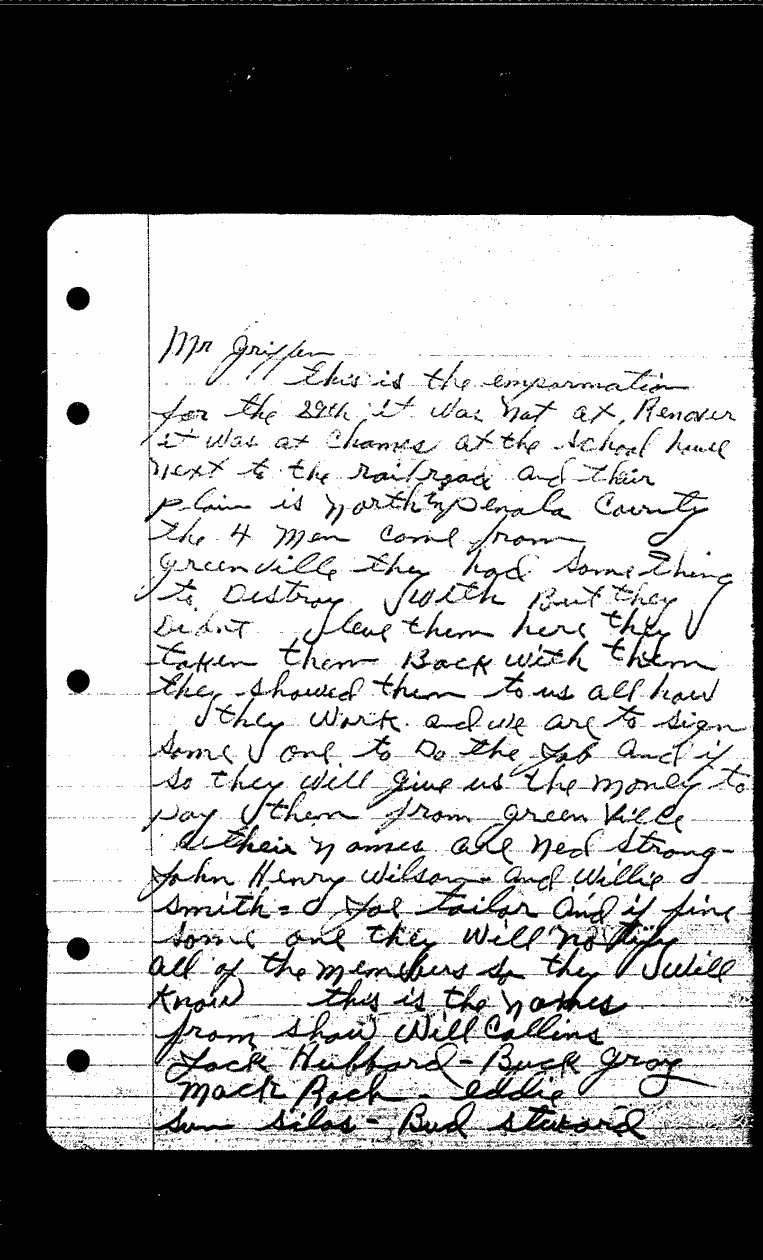 Mr Griffen
this is the emparmation
for the 29th it was not at Renover
it was at Chames at the School house
next to the railroad and their
plain is North Penola County
the 4 men come from
greenville they had something
to Destroy with But they
Didnt leve them here they
taken them Back with them
they showed them to us all how
they work and we are to sign
some one to Do the Job and if
so they will give us the money to
pay them from green ville
their names are Ned Strong-
John Henry Wilson - and Willie
Smith = Joe tailor and if fine
some one they will notify
all of the members so they will
know this is the names
from shaw Will Collins
Jack Hubbard - Buck Gray
Mack Rach - eddie
Sun silas - Bud steward